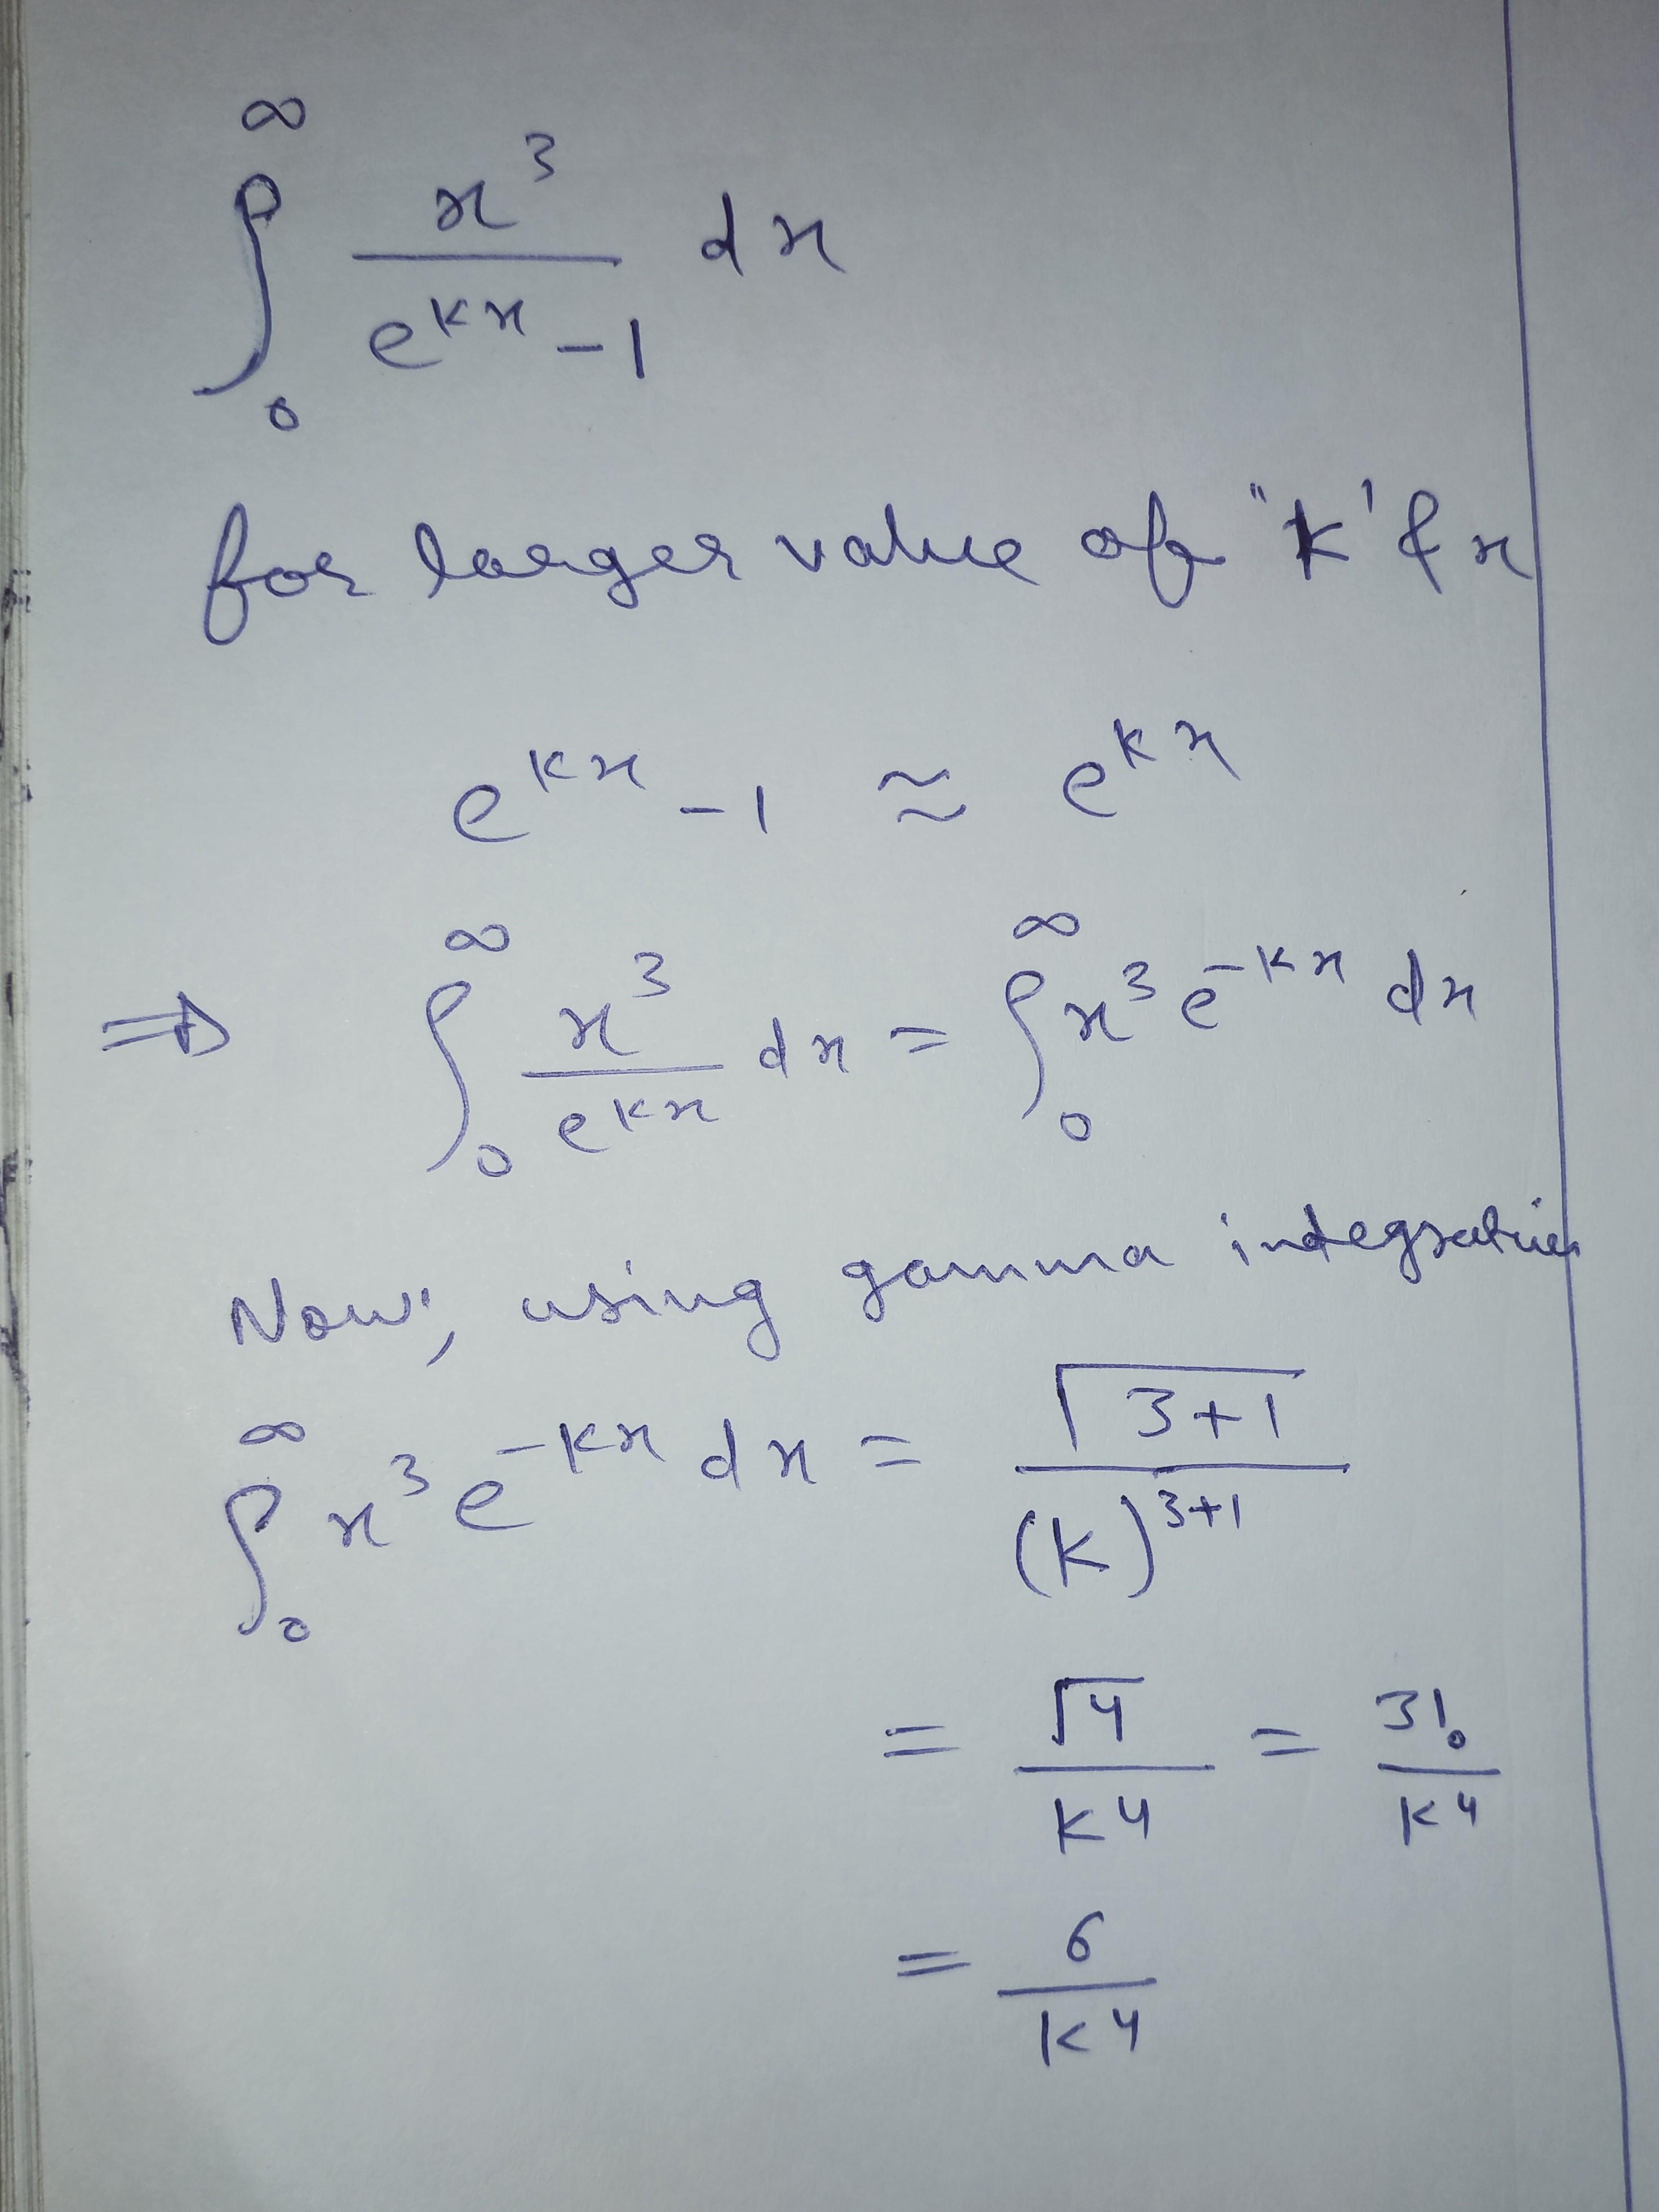 ∫₀^∞ x³/(e^(kx) − 1) dx
for larger value of "k' & x
e^(kx) − 1 ≈ e^(kx)
⇒ ∫₀^∞ x³/e^(kx) dx = ∫₀^∞ x³ e^(−kx) dx
Now, using gamma integration
∫₀^∞ x³ e^(−kx) dx = Γ(3+1)/(k)^(3+1)
= Γ4/k⁴ = 3!/k⁴
= 6/k⁴